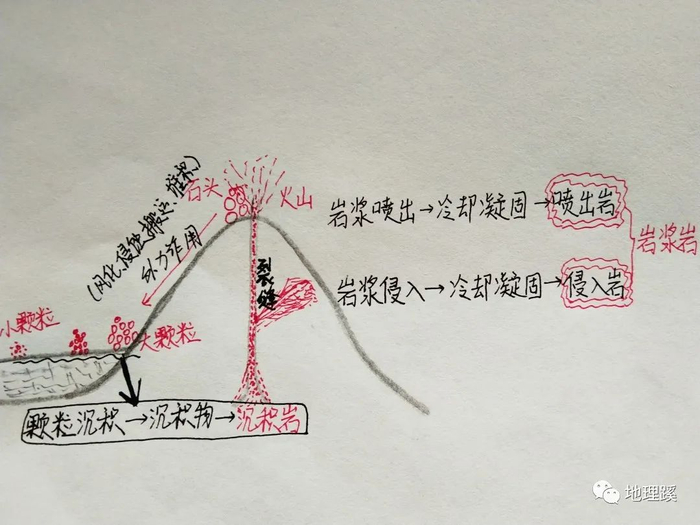 (风化、侵蚀、搬运、堆积)
外力作用
石头
火山
裂缝
岩浆喷出→冷却凝固→喷出岩
岩浆岩
岩浆侵入→冷却凝固→侵入岩
小颗粒
大颗粒
颗粒沉积→沉积物→沉积岩
地理蹊